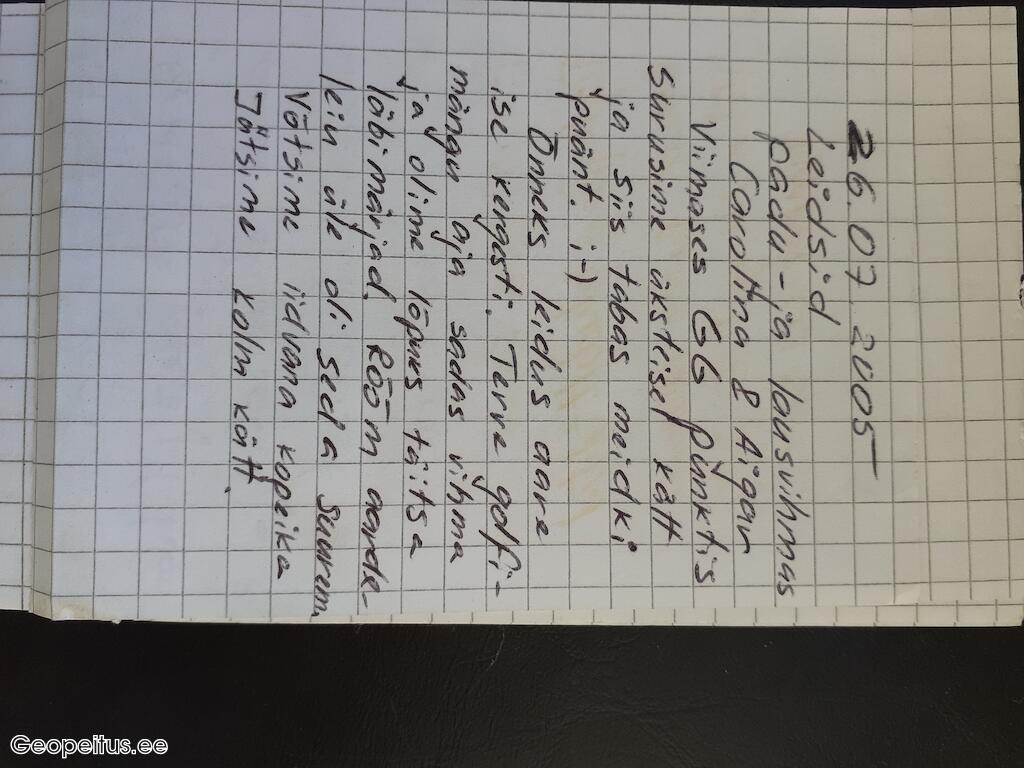 26.07.2005
Leidsid
padu-ja lausvihmas
Carolina & Aigar
Viimases GG punktis
surusime üksteisel kätt
ja siis tabas meidki
punänt. ;-)
Õnneks leidus aare
ise kergesti. Terve golfi-
mängu aja sadas vihma
ja olime lõpuks täitsa
läbimärjad. Rõõm aarde-
leiu üle oli seda suurem
Võtsime iidvana kopeika
Jätsime kolm kätt.
Geopeitus.ee